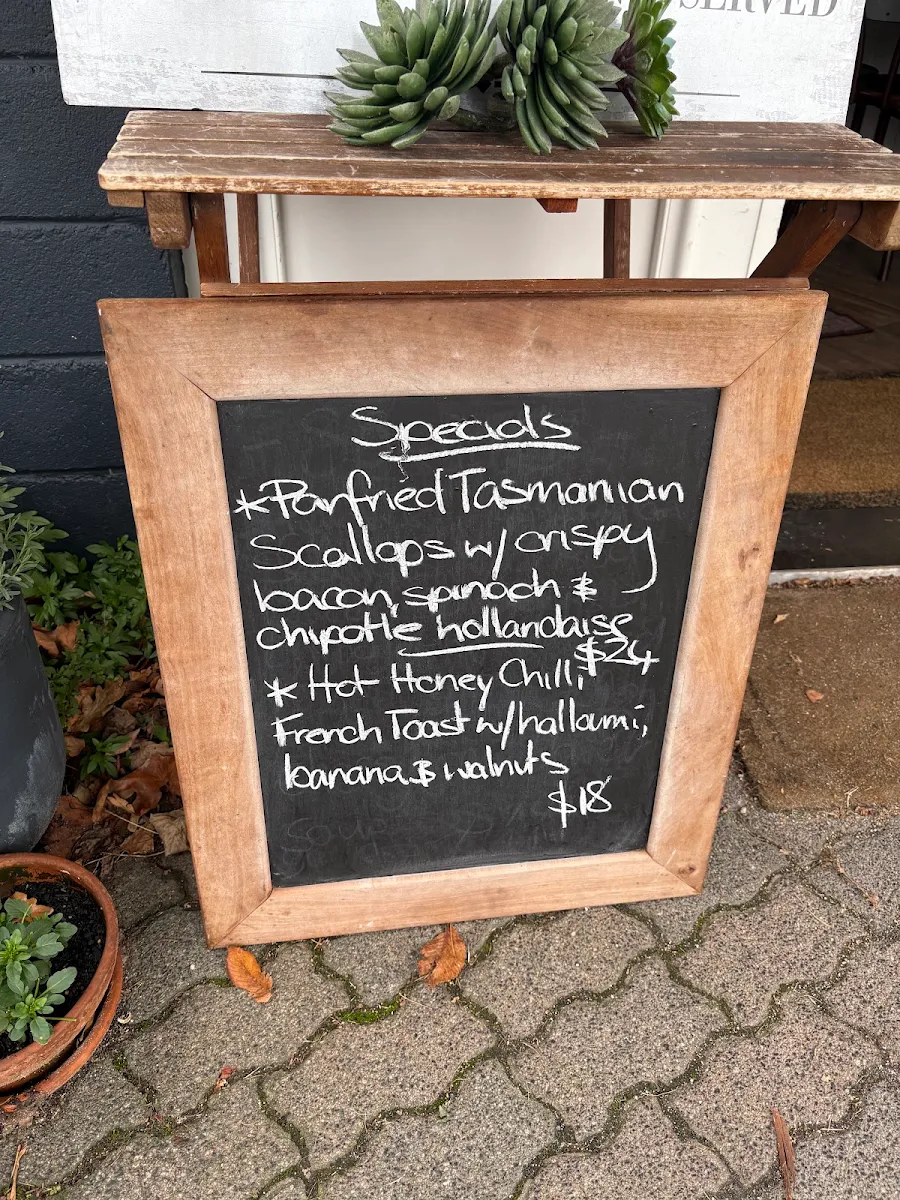 SERVED
Specials
*Panfried Tasmanian
Scallops w/ crispy
bacon, spinach &
chipotle hollandaise
$24
* Hot Honey Chilli
French Toast w/ halloumi,
banana & walnuts
$18